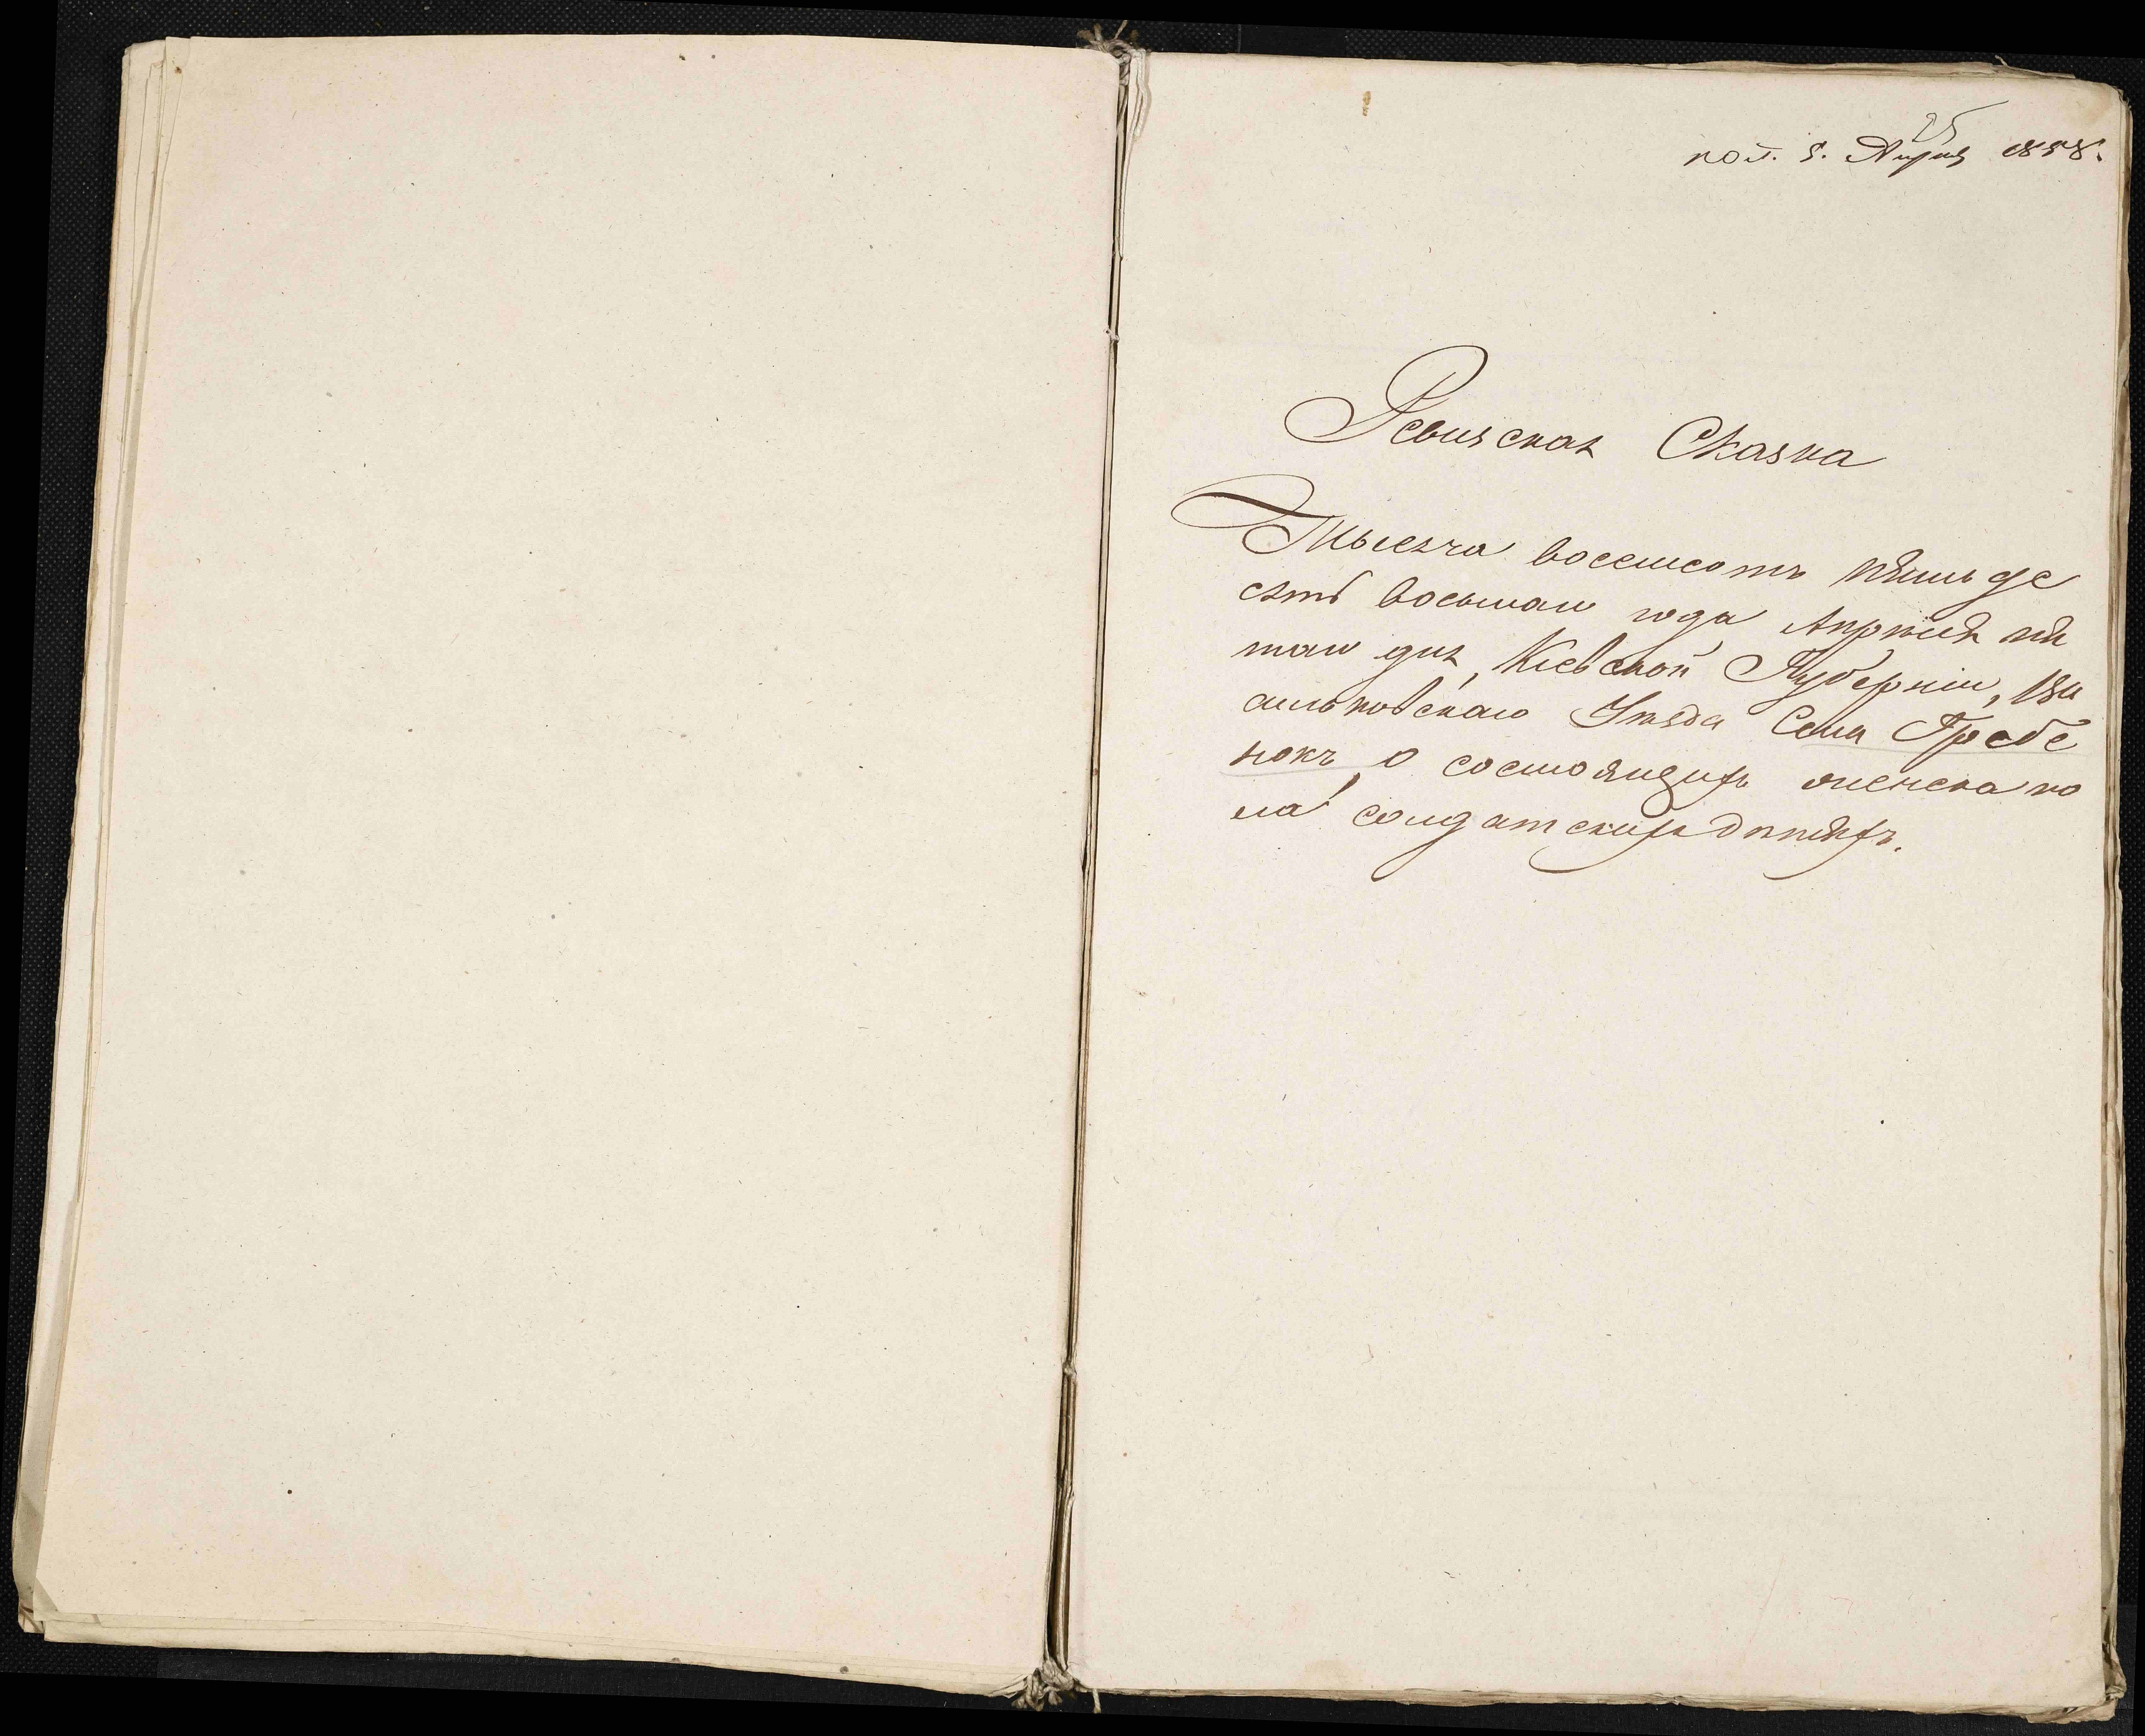 25
пол. 5. Апрля 1858.
Ревизская Сказка
Тысяча восемсотъ пятьде
сятъ восьмаго года Апрѣля пя
таго дня, Кіевской Губерніи, Ва
сильковскаго Уѣзда Села Гребе
нокъ, о состоящихъ женскаго по
ла солдатскихъ дѣтяхъ.